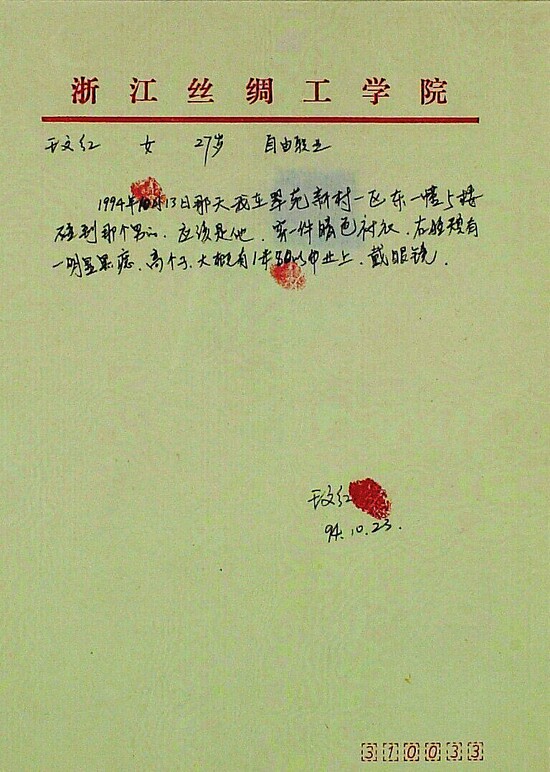 浙江丝绸工学院
王文红 女 27岁 自由职业
1994年10月13日那天我在翠苑新村一区东一幢上楼
碰到那个男的、应该是他、穿一件暗色衬衣、右脸颊有
一明显黑痣、高个子、大概有1米80以上、戴眼镜。
王文红
94.10.23.
310033